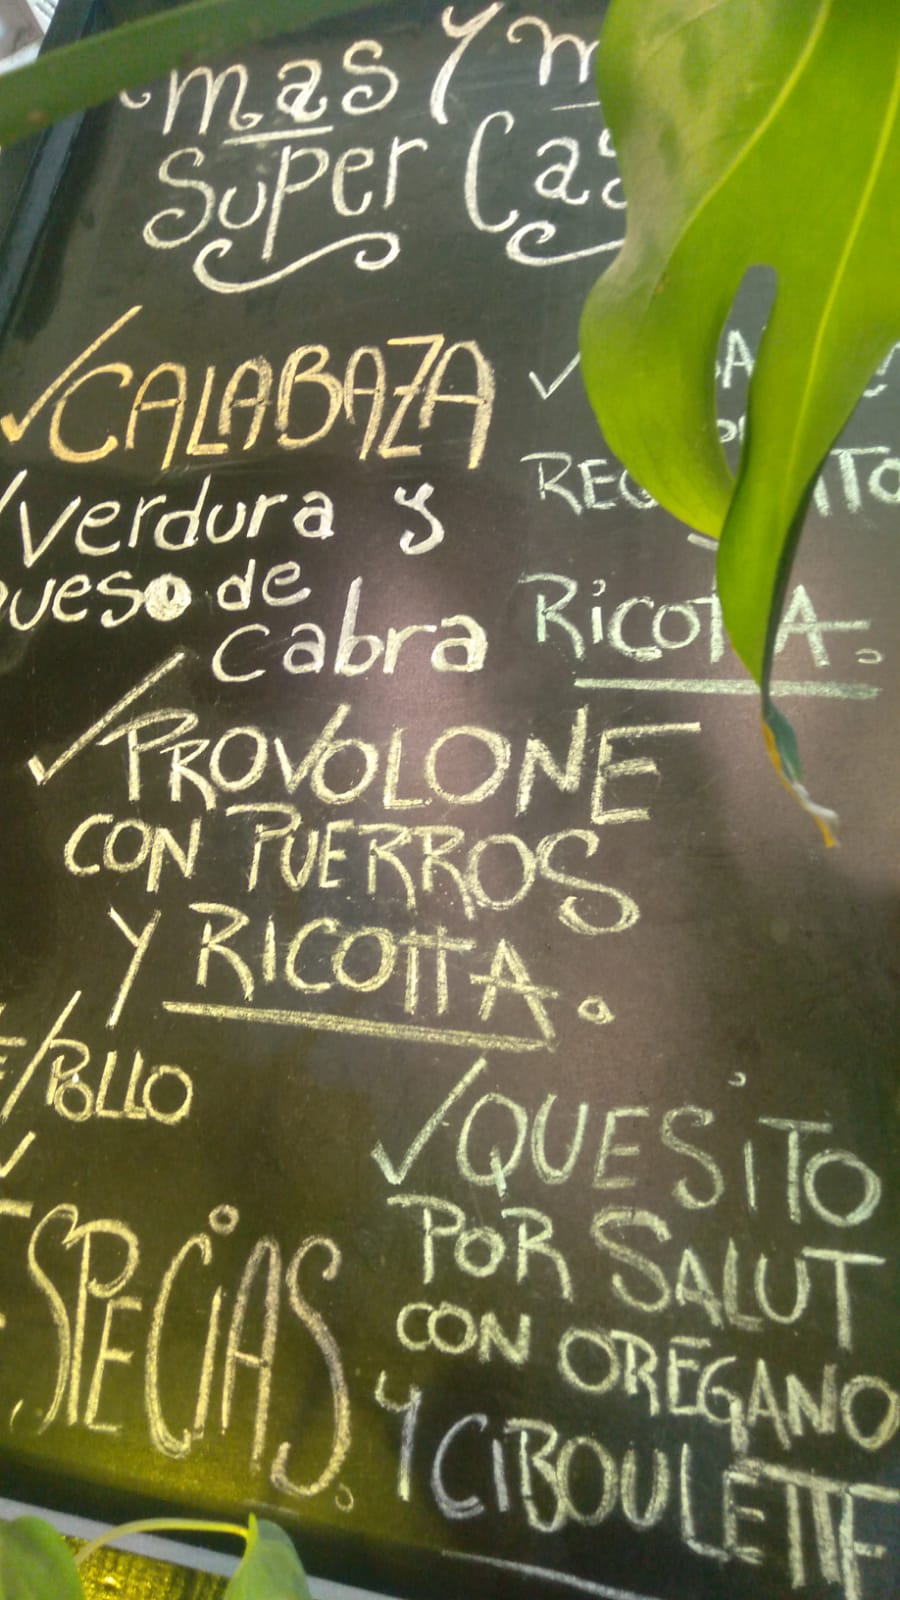 mas y
Super
CALABAZA
verdura y
queso de
cabra
RICOTTA.
PROVOLONE
CON PUERROS
Y RICOTTA.
POLLO
ESPECIAS.
QUESITO
POR SALUT
CON OREGANO
Y CIBOULETTE